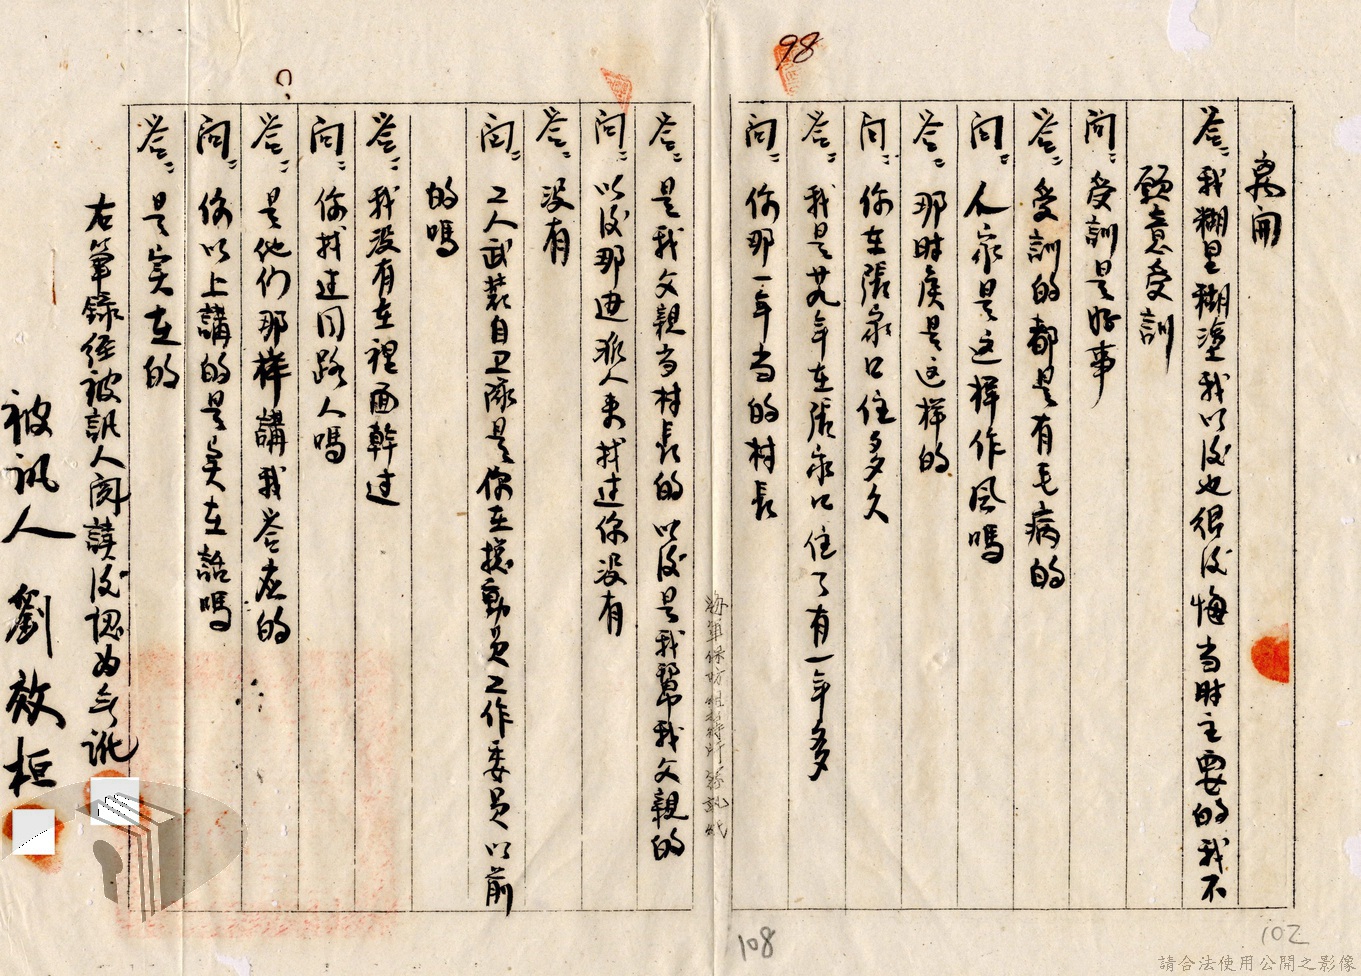 98
離開
答:我糊里糊塗我以後也很後悔当时主要的我不
願意受訓
問:受訓是好事
答:受訓的都是有毛病的
問:人家是这样作风嗎
答:那时候是这样的
問:你在張家口住多久
答:我是廿九年在張家口住了有一年多
問:你那一年当的村長
海軍保防組招待所談訊紙
答:是我父親当村長的以後是我幫我父親的
問:以後那边派人来找过你没有
答:没有
問:工人武裝自卫隊是你在總動員工作委員以前
的嗎
答:我没有在裡面幹过
問:你找过同路人嗎
答:是他们那样講我答应的
問:你以上講的是实在話嗎
答:是实在的
右筆錄经被訊人閱讀後認为無訛
被訊人 劉效桓
108
102
請合法使用公開之影像